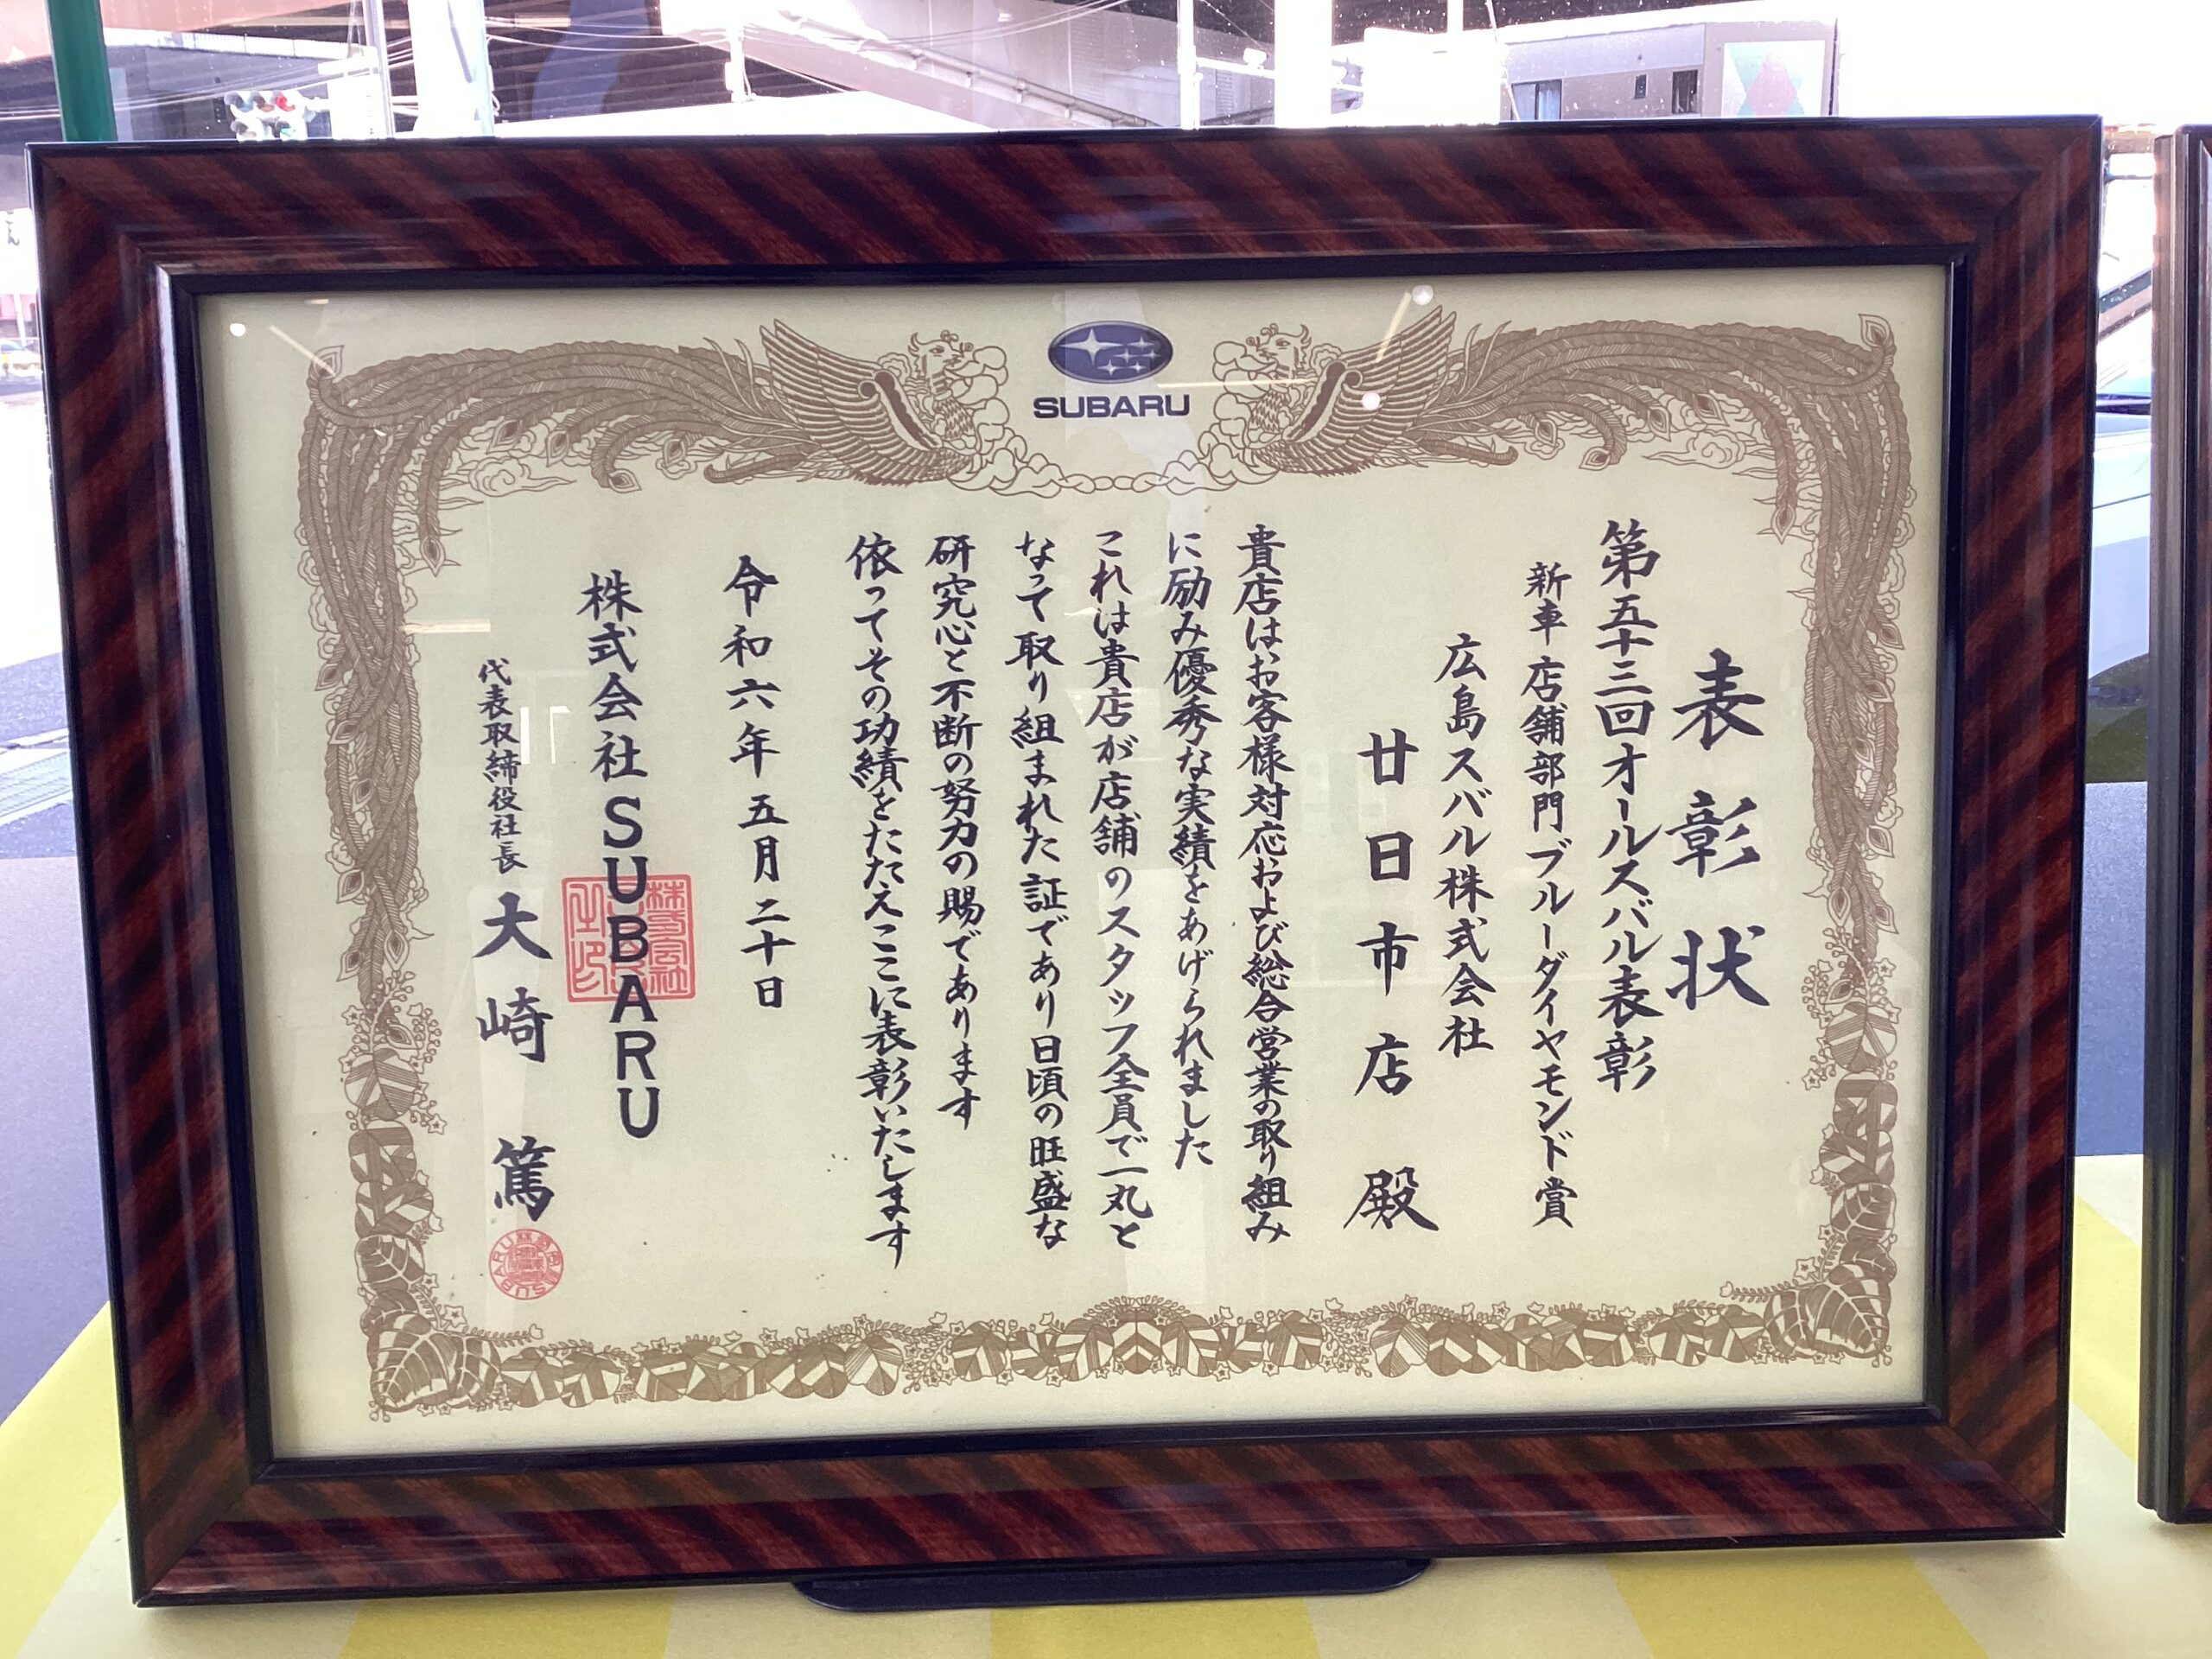 SUBARU
表彰状
第五十三回オールスバル表彰
新車店舗部門ブルーダイヤモンド賞
広島スバル株式会社
廿日市店 殿
貴店はお客様対応および総合営業の取り組み
に励み優秀な実績をあげられました
これは貴店が店舗のスタッフ全員で一丸と
なって取り組まれた証であり日頃の旺盛な
研究心と不断の努力の賜であります
依ってその功績をたたえここに表彰いたします
令和六年五月二十日
株式会社SUBARU
代表取締役社長 大崎 篤